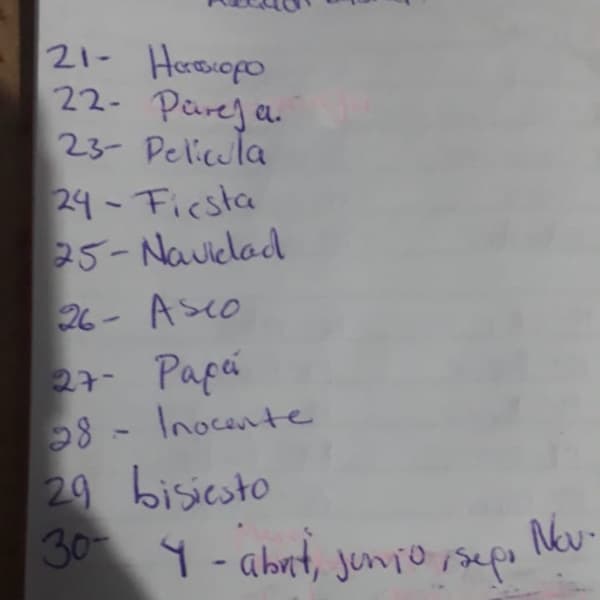 21- Horoscopo
22- Pareja.
23- Pelicula
24- Fiesta
25- Navidad
26- Aseo
27- Papá
28- Inocente
29 bisiesto
30- Y - abril, junio, sep, Nov.